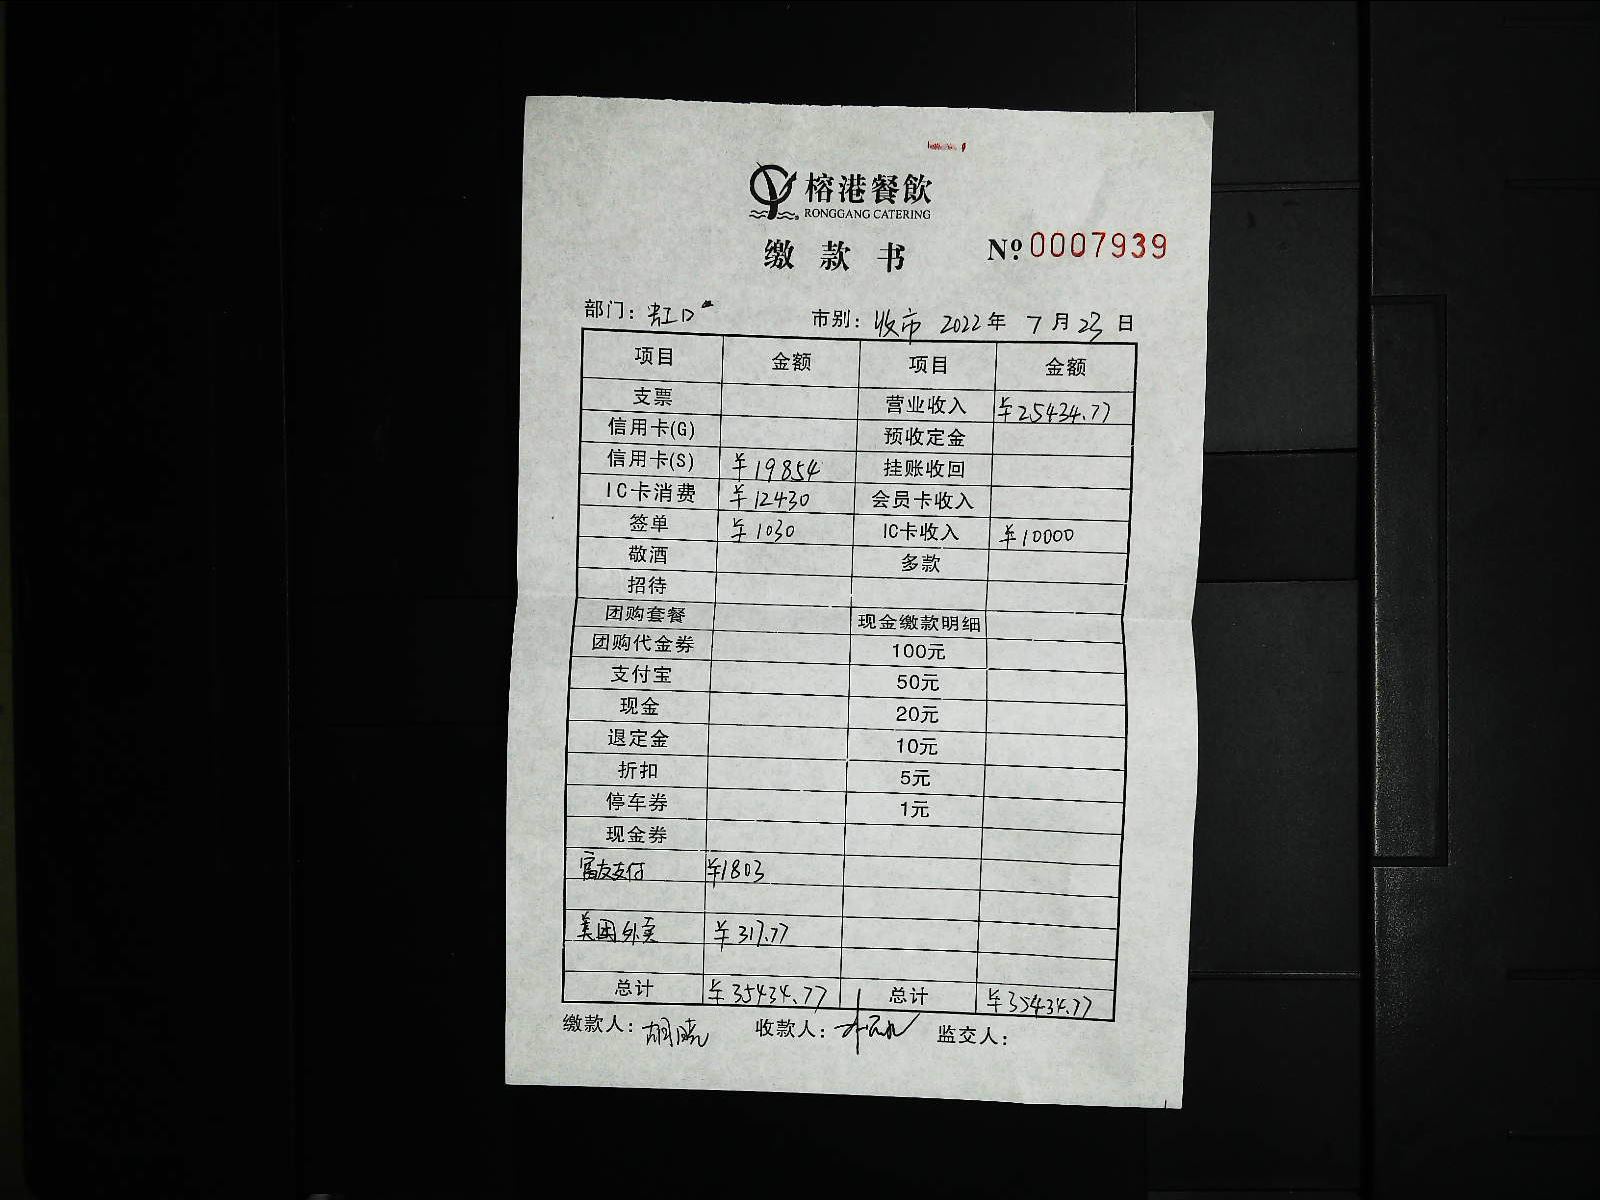 榕港餐飲
RONGGANG CATERING
缴款书 №0007939
部门：虹口 市别：收市 2022年 7月 23日
项目 金额 项目 金额
支票 营业收入 ¥25434.77
信用卡(G) 预收定金
信用卡(S) ¥19854 挂账收回
IC卡消费 ¥12430 会员卡收入
签单 ¥1030 IC卡收入 ¥10000
敬酒 多款
招待
团购套餐 现金缴款明细
团购代金券 100元
支付宝 50元
现金 20元
退定金 10元
折扣 5元
停车券 1元
现金券
富友支付 ¥1803
美团外卖 ¥317.77
总计 ¥35434.77 总计 ¥35434.77
缴款人：胡晓 收款人： 监交人：